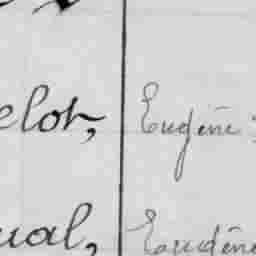 elot, Eugène
ual, Eugène